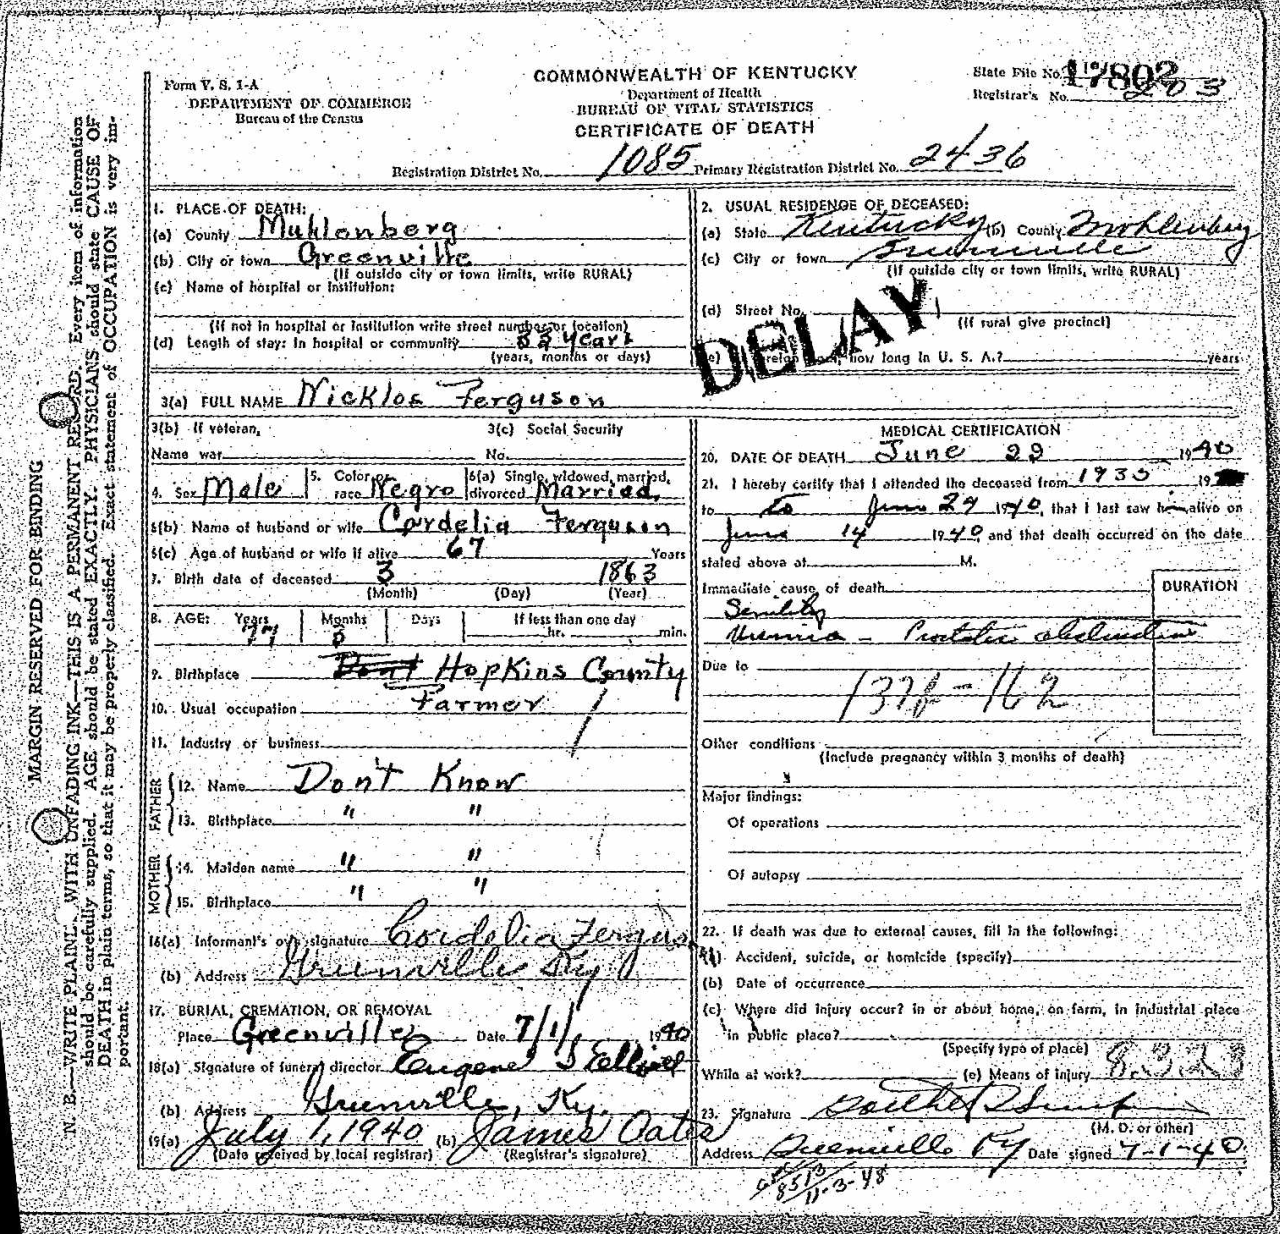 Form V. S. 1-A
DEPARTMENT OF COMMERCE
Bureau of the Census
COMMONWEALTH OF KENTUCKY
Department of Health
BUREAU OF VITAL STATISTICS
CERTIFICATE OF DEATH
State File No. 17802
Registrar's No. 203
Registration District No. 1085 Primary Registration District No. 2436
MARGIN RESERVED FOR BINDING
N. B.—WRITE PLAINLY, WITH UNFADING INK—THIS IS A PERMANENT RECORD. Every item of information
should be carefully supplied. AGE should be stated EXACTLY. PHYSICIANS should state CAUSE OF
DEATH in plain terms, so that it may be properly classified. Exact statement of OCCUPATION is very im-
portant.
1. PLACE OF DEATH:
(a) County Muhlenberg
(b) City or town Greenville
(If outside city or town limits, write RURAL)
(c) Name of hospital or institution:
(If not in hospital or institution write street number or location)
(d) Length of stay: In hospital or community years
(years, months or days)
2. USUAL RESIDENCE OF DECEASED:
(a) State Kentucky (b) County Mohlenberg
(c) City or town Greenville
(If outside city or town limits, write RURAL)
(d) Street No.
(If rural give precinct)
DELAY
(e) foreign born, how long in U. S. A.? years
3(a) FULL NAME Nicklos Ferguson
3(b) If veteran, 3(c) Social Security
Name war No.
4. Sex Male 5. Color or race Negro 6(a) Single, widowed, married, divorced Married.
6(b) Name of husband or wife Cordelia Ferguson
6(c) Age of husband or wife if alive 67 Years
7. Birth date of deceased 3 1863
(Month) (Day) (Year)
8. AGE: Years Months Days If less than one day
77 3 hr. min.
9. Birthplace Dont Hopkins County
10. Usual occupation Farmer
11. Industry or business
FATHER
12. Name Don't Know
13. Birthplace " "
MOTHER
14. Maiden name " "
15. Birthplace " "
16(a) Informant's own signature Cordelia Ferguson
(b) Address Greenville Ky
17. BURIAL, CREMATION, OR REMOVAL
Place Greenville Date 7/1/ 1940
18(a) Signature of funeral director Eugene S
(b) Address Greenville, Ky.
19(a) July 1, 1940 (b) James Oates
(Date received by local registrar) (Registrar's signature)
MEDICAL CERTIFICATION
20. DATE OF DEATH June 29 1940
21. I hereby certify that I attended the deceased from 1935 19
to to June 29 1940, that I last saw him alive on
June 14 1940, and that death occurred on the date
stated above at M.
Immediate cause of death DURATION
Senility
Uremia - Prostatic obstruction
Due to
137 - 162
Other conditions
(Include pregnancy within 3 months of death)
Major findings:
Of operations
Of autopsy
22. If death was due to external causes, fill in the following:
(a) Accident, suicide, or homicide (specify)
(b) Date of occurrence
(c) Where did injury occur? in or about home, on farm, in industrial place
in public place?
(Specify type of place)
While at work? (e) Means of injury
23. Signature
(M. D. or other)
Address Greenville Ky Date signed 7-1-40
8513
11-3-48